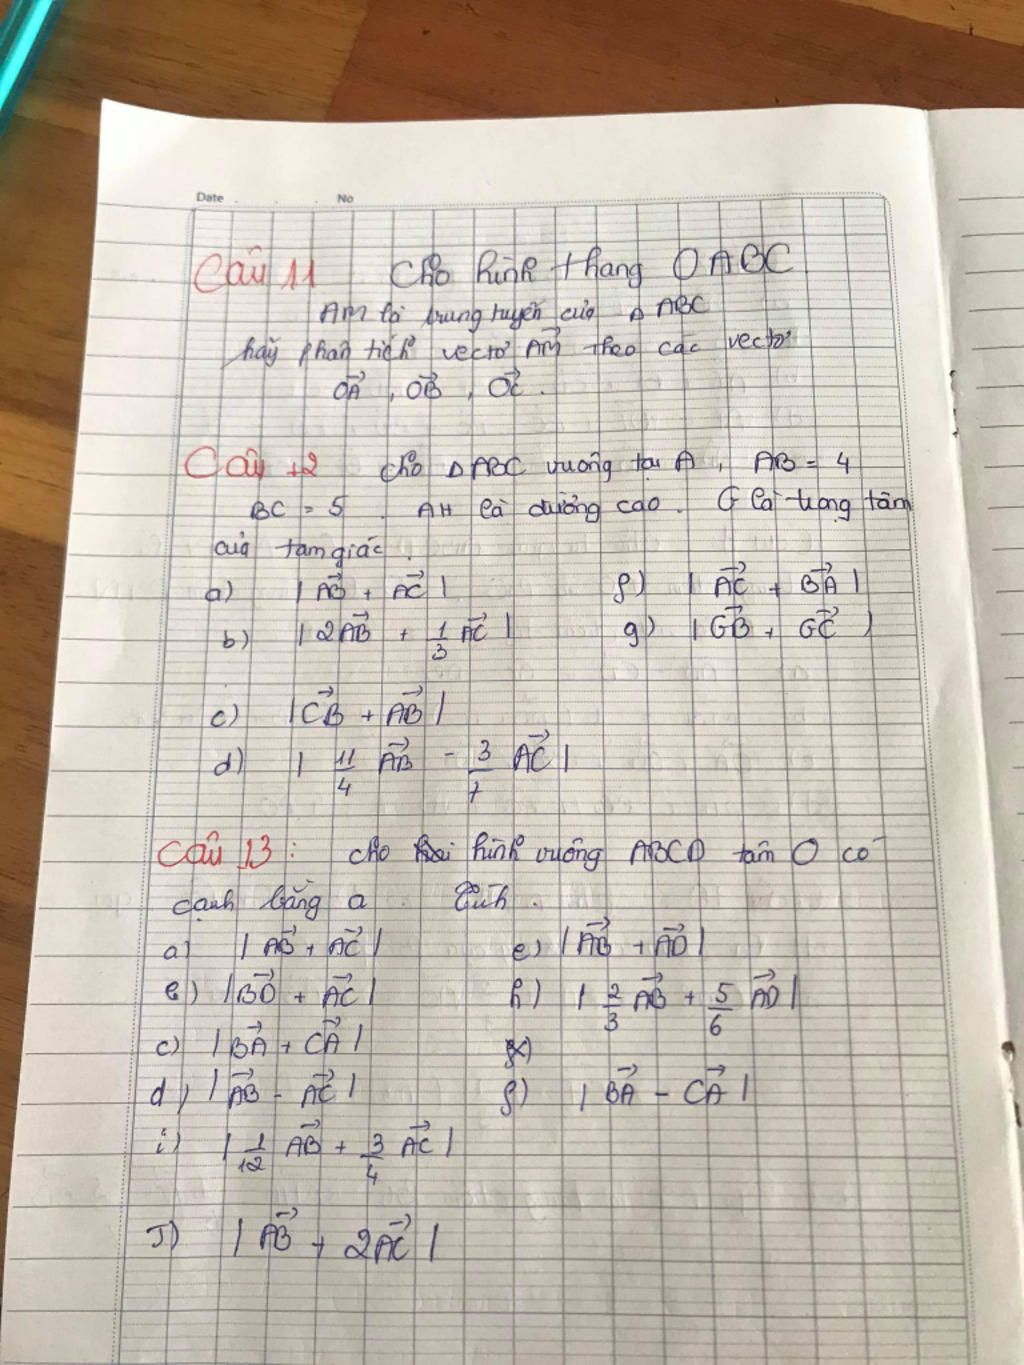 Date No
Câu 11 Cho hình thang OABC
AM là trung tuyến của Δ ABC
hãy phân tích vectơ AM⃗ theo các vectơ
OA⃗ , OB⃗ , OC⃗ .
Câu 12 Cho ΔABC vuông tại A , AB = 4
BC = 5 . AH là đường cao . G là trọng tâm
của tam giác .
a) |AB⃗ + AC⃗| f) |AC⃗ + BA⃗|
b) |2AB⃗ + 1/3 AC⃗| g) |GB⃗ + GC⃗|
c) |CB⃗ + AB⃗|
d) |11/4 AB⃗ - 3/7 AC⃗|
Câu 13 : Cho hình vuông ABCD tâm O có
cạnh bằng a . Tính .
a) |AB⃗ + AC⃗| e) |AB⃗ + AD⃗|
b) |BD⃗ + AC⃗| h) |2/3 AB⃗ + 5/6 AD⃗|
c) |BA⃗ + CA⃗|
d) |AB⃗ - AC⃗| g) |BA⃗ - CA⃗|
i) |1/12 AB⃗ + 3/4 AC⃗|
J) |AB⃗ + 2AC⃗|